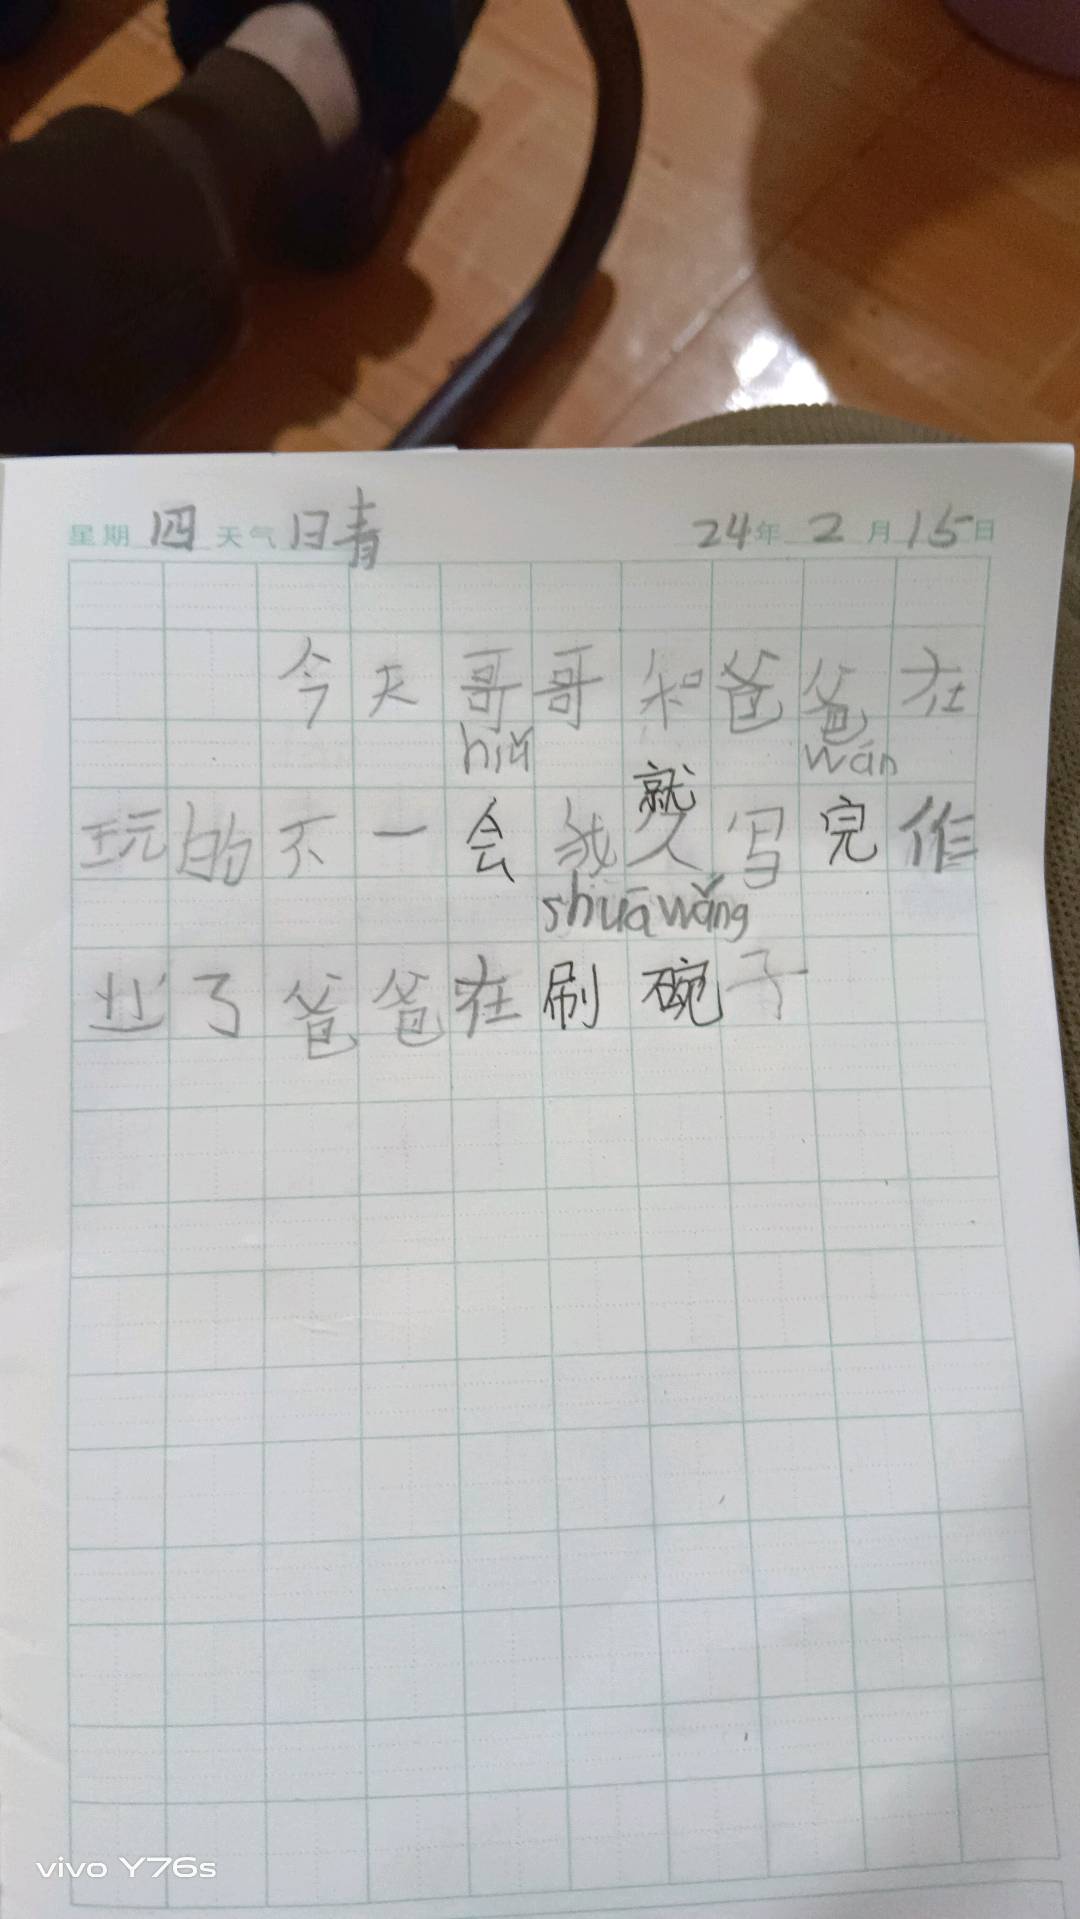 星期 四 天气 日青 24年 2月 15日
今天哥哥和爸爸在
hiǔ wán
就
玩的不一会我人写完作
shuā wǎng
业了爸爸在刷碗子
vivo Y76s